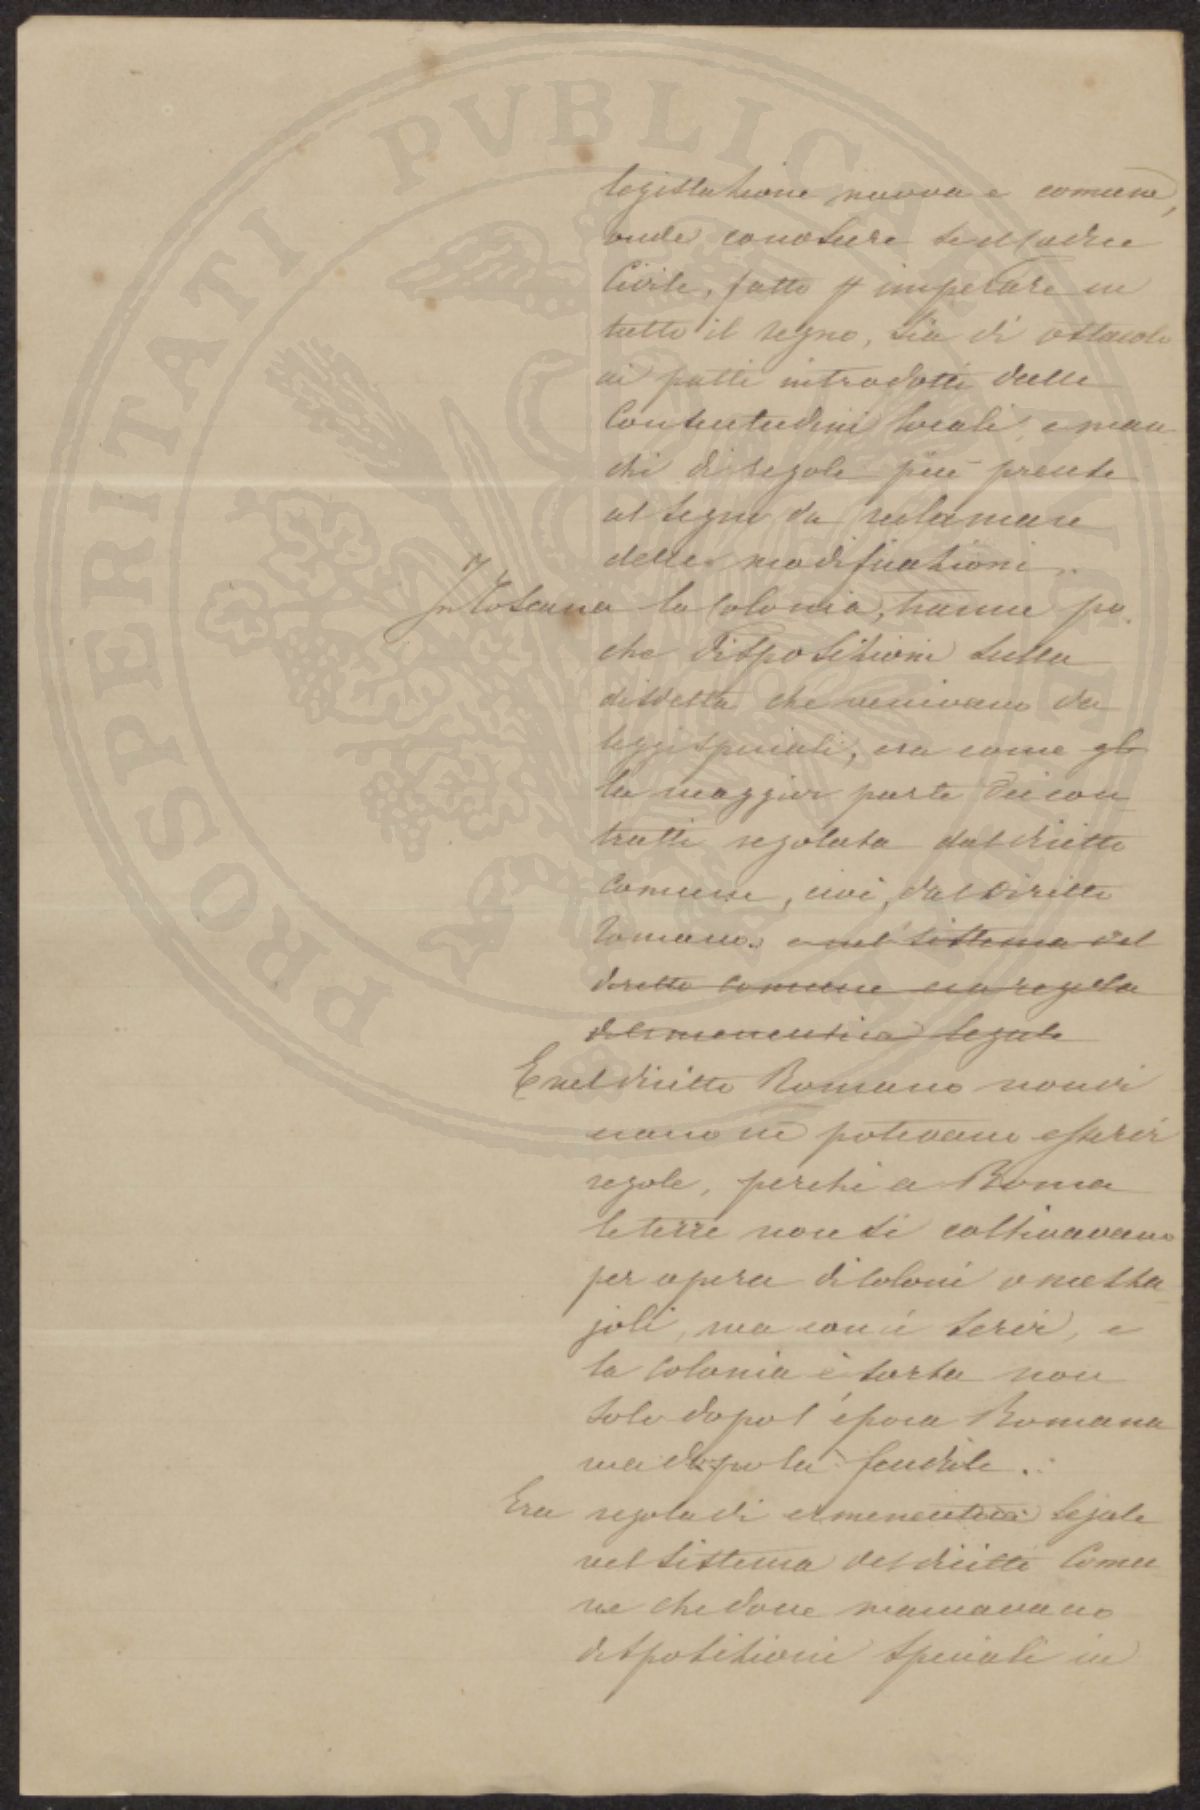 PROSPERITATI PVBLICAE
legislazione nuova e comune,
onde conoscere se il Codice
Civile, fatto imperare in
tutto il regno, sia di ostacolo
ai patti introdotti dalle
Consuetudini locali, e man
chi di regole più precise
al segno da reclamare
delle modificazioni.
In Toscana la Colonia, tranne po
che disposizioni sulla
disdetta che venivano da
leggi speciali, era come
la maggior parte dei con
tratti regolata dal diritto
Comune, cioè, dal Diritto
Romano. e nel sistema del
diritto comune era regola
di ermeneutica legale
E nel diritto Romano non vi
erano nè potevano esservi
regole, perchè a Roma
le terre non si coltivavano
per opera di coloni o mezza
joli, ma con i servi, e
la Colonia è sorta non
solo dopo l'época Romana
ma dopo la feudale.
Era regola di ermeneutica legale
nel sistema del diritto Comu
ne che dove mancavano
disposizioni speciali in